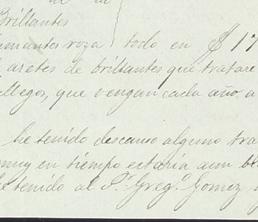 Brillantes
diamantes roza todo en $ 17
aretes de brillantes que tratare
llegos, que vengan cada año a
he tenido descanso alguno tra
muy en tiempo estaria aun
tenido al Sr. Gregº Gomez